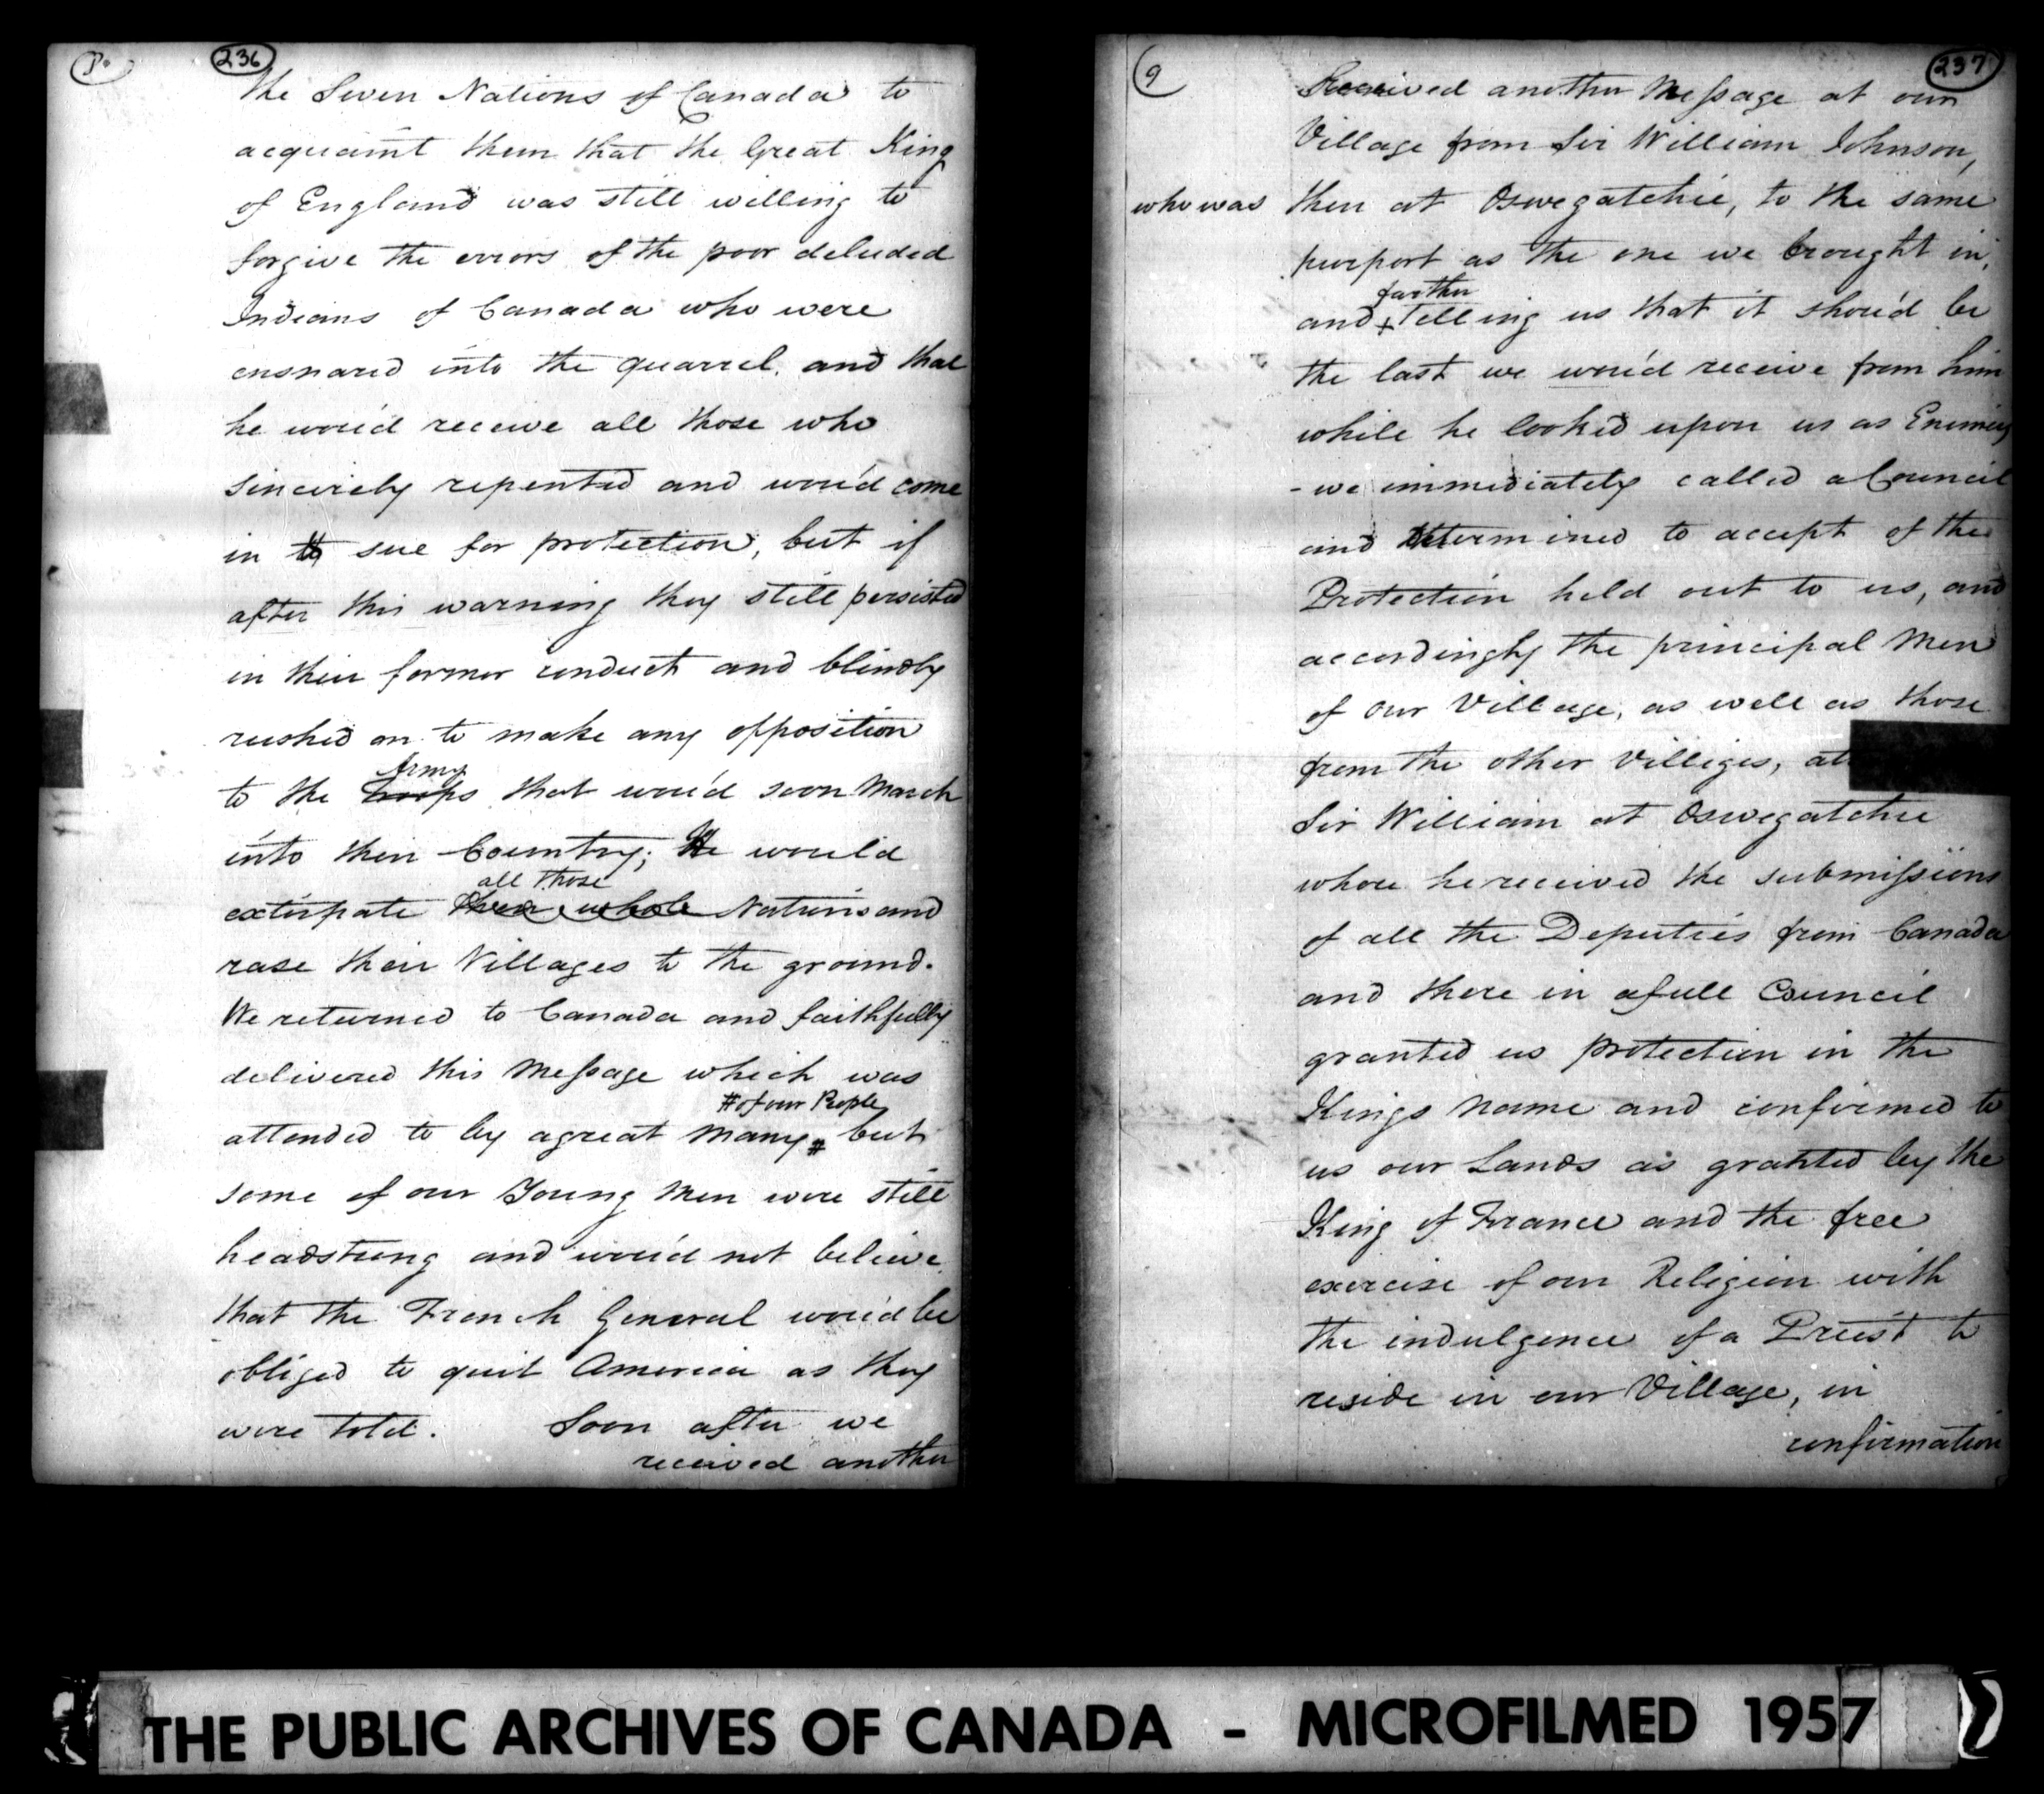 236
the Seven Nations of Canada to
acquaint them that the Great King
of England was still willing to
forgive the errors of the poor deluded
Indians of Canada who were
ensnared into the quarrel, and that
he wou'd receive all those who
sincerely repented and wou'd come
in to sue for protection, but if
after this warning they still persisted
in their former conduct and blindly
rushed on to make any opposition
Army
to the troops that wou'd soon March
into their Country; He would
all those
extirpate their whole Nations and
rase their Villages to the ground.
We returned to Canada and faithfully
delivered this Message which was
# of our People
attended to by a great many # but
some of our Young Men were still
headstrong and wou'd not believe
that the French General wou'd be
obliged to quit America as they
were told. Soon after we
received another
9
237
Received another Message at our
Village from Sir William Johnson,
who was then at Oswegatchie, to the same
purport as the one we brought in,
farther
and + telling us that it shou'd be
the last we wou'd receive from him
while he looked upon us as Enemies
- we immediately called a Council
and determined to accept of the
Protection held out to us, and
accordingly the principal Men
of our Village, as well as those
from the other Villiges, at
Sir William at Oswegatchie
where he received the submissions
of all the Deputies from Canada
and there in a full Council
granted us protection in the
Kings name and confirmed to
us our Lands as granted by the
King of France and the free
exercise of our Religion with
the indulgence of a Priest to
reside in our Village, in
confirmation
THE PUBLIC ARCHIVES OF CANADA - MICROFILMED 1957